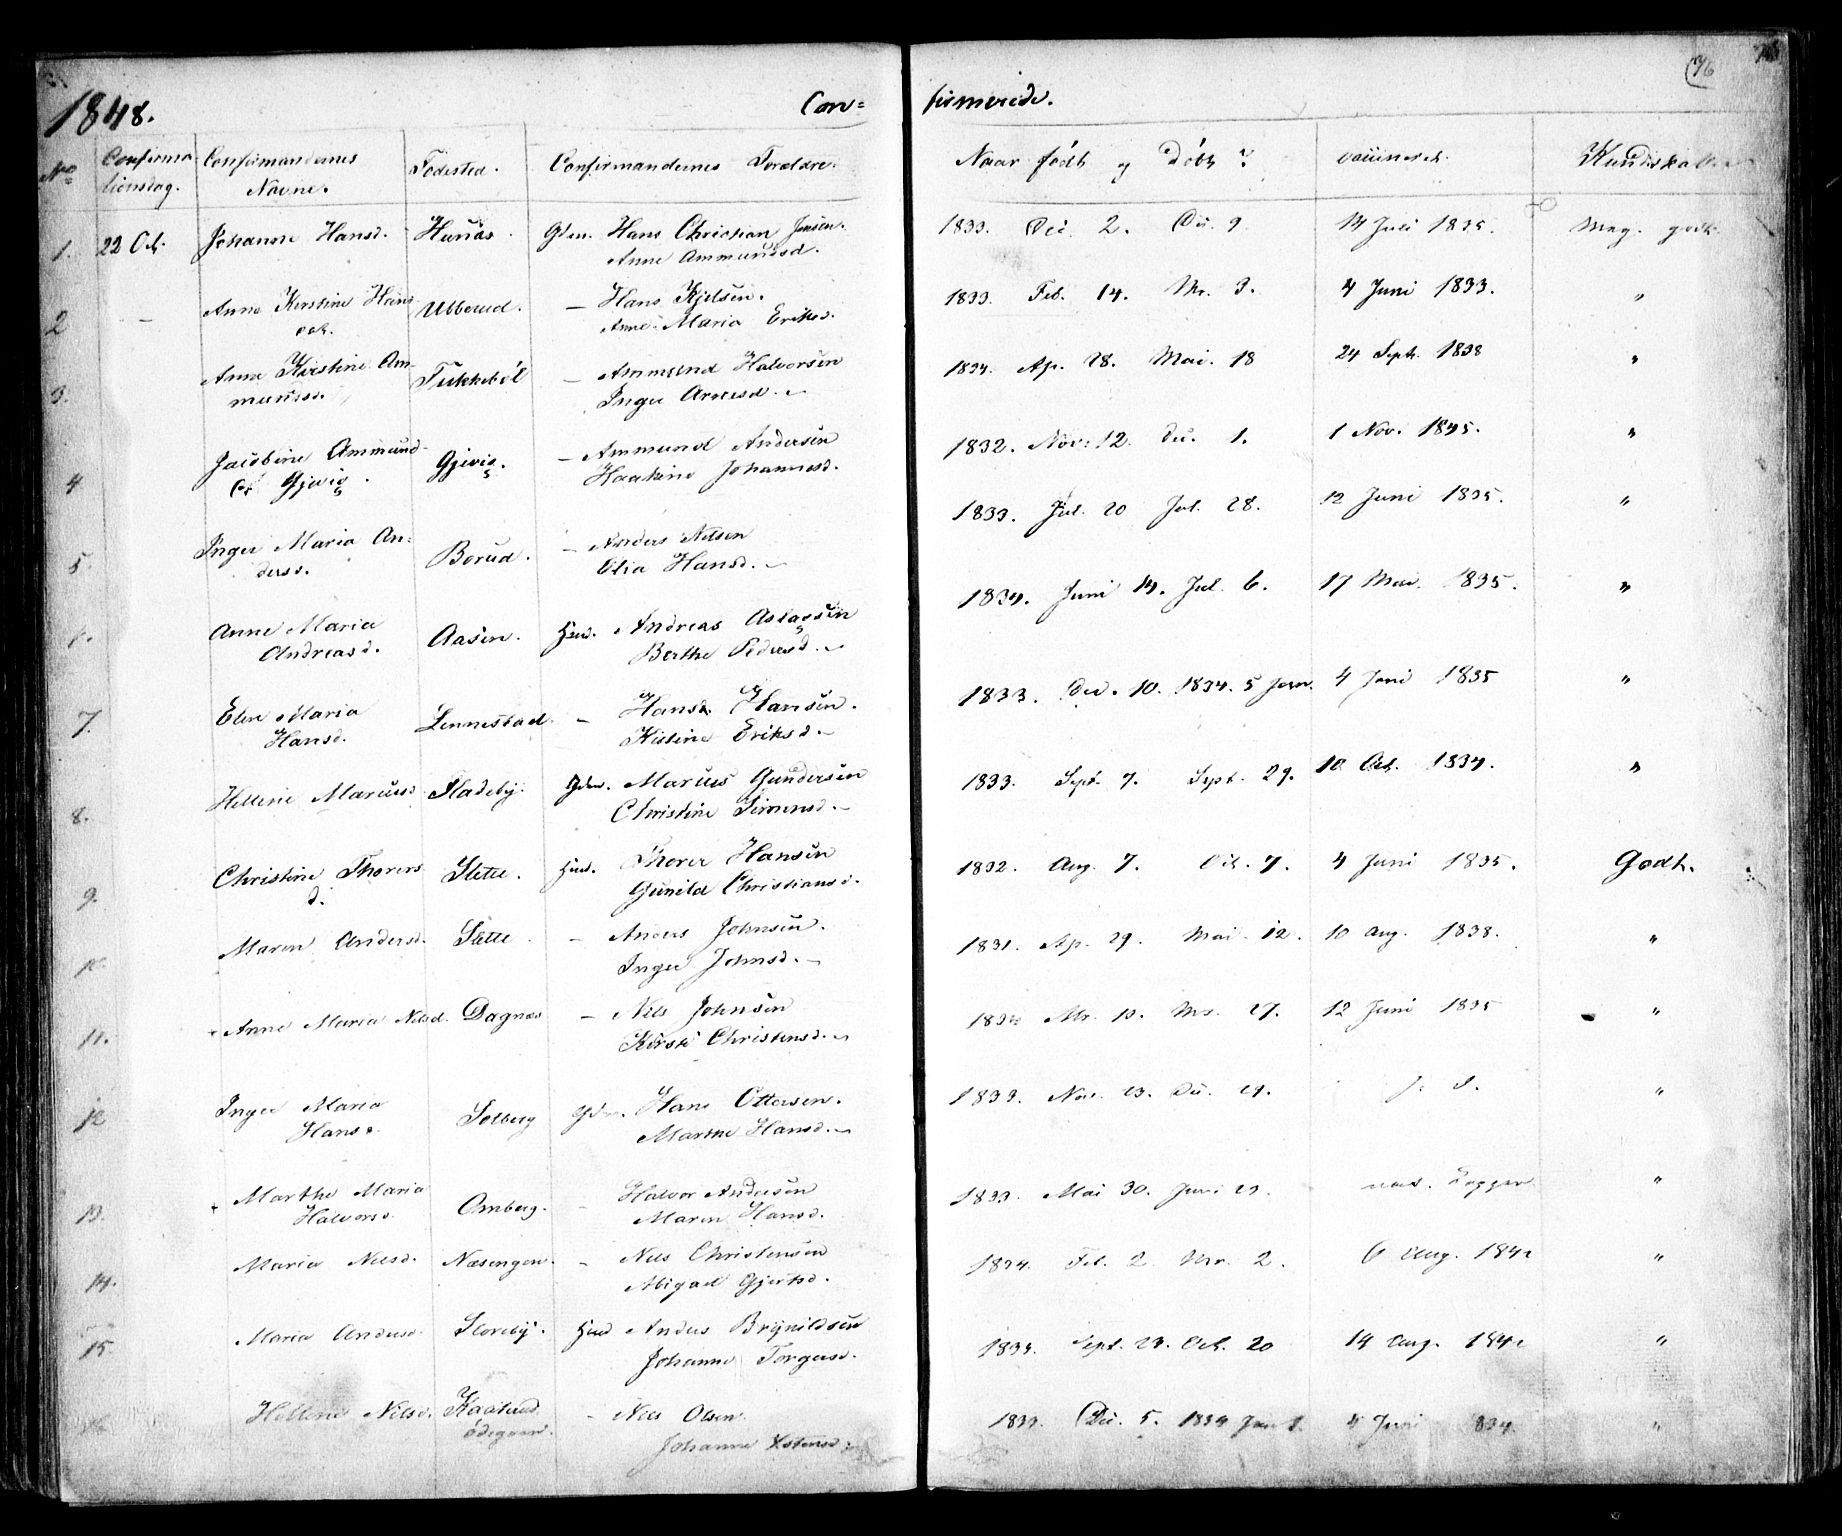 76
1848. Con= firmerede.
No Confirma Confirmandernes Fødested. Confirmandernes Forældre. Naar født og døbt? vaccineret. Kundskab
tionsdag. Navne.
1. 22 Oct. Johanne Hansd. Hunds. Gdm. Hans Christian Jensen. 1833. Dec. 2. Dec. 9 14 Juli 1835. Meg. godt
Anne Ammundsd.
2 — Anne Kirstine Hans Ubberud. — Hans Kjelsen. 1833. Feb. 14. Mr. 3. 4 Juni 1833. "
dat. Anne Maria Eriksd.
3. Anne Kirstine Am- Tukkebøl — Ammund Halvorsen 1834. Ap. 28. Mai. 18 24 Sept. 1838 "
mundsd. Inger Arnesd.
4 Jacobine Ammund- Gjevig. — Ammund Andersen 1832. Nov. 12. Dec. 1. 1 Nov. 1845. "
Gjevig. Haakine Johannesd.
5. Inger Maria An= Borud. — Anders Nilsen 1833. Jul. 20 Jul. 28. 12 Juni 1835. "
dersd. Olia Hansd.
6. Anne Maria Aasen. Huusm. Andreas Aslagsen 1834. Juni 14. Jul. 6. 17 Mai. 1835. "
Andreasd. Berthe Pedersd.
7. Elen Maria Lennestad. — Hans Hansen. 1833. Dec. 10. 1834. 5 Janr. 4 Juni 1835 "
Hansd. Kistine Eriksd.
8. Hellene Marcusd. Sladeby. Gdm. Marcus Gundersen 1833. Sept. 7. Sept. 29. 10 Oct. 1834. "
Christine Simensd.
9. Christine Thorers Slette. Huusm. Thorer Hansen 1832. Aug. 7. Oct. 7. 4 Juni 1835. Godt.
d. Gunild Christiansd.
10. Maren Andersd. Slette. — Anders Johnsen. 1831. Ap. 29. Mai. 12. 10 Aug. 1838. "
Inger Johnsd.
11. + Anne Maria Nilsd. Dagnæs — Nils Johnsen 1834 Mr. 10. Mr. 27. 12 Juni 1835 "
Kirsti Christensd.
12 Inger Maria Solberg Gdm. Hans Ottersen. 1833. Nov. 23. Dec. 29. "
Hansd. Marthe Hansd.
13. + Marthe Maria Omberg. - Halvor Andersen 1833. Mai 30. Juni 23. nat. Kopper "
Halvorsd. Maren Hansd.
14. Maria Nilsd. Næsengen. - Nils Christensen 1834. Feb. 2 Mr. 2. 6 Aug. 1842 "
Abigael Gjertsd.
15 Maria Andersd. Storeby. Huusm. Anders Brynildsen 1833. Sept. 23. Oct. 20 14 Aug. 1842 "
Johanne Torgersd.
16. Hellene Nilsd. Kaatrud - Nils Olsen. 1833. Dec. 5. 1834 Jan 1. 4 Juni 1834. "
ødegaard. Johanne